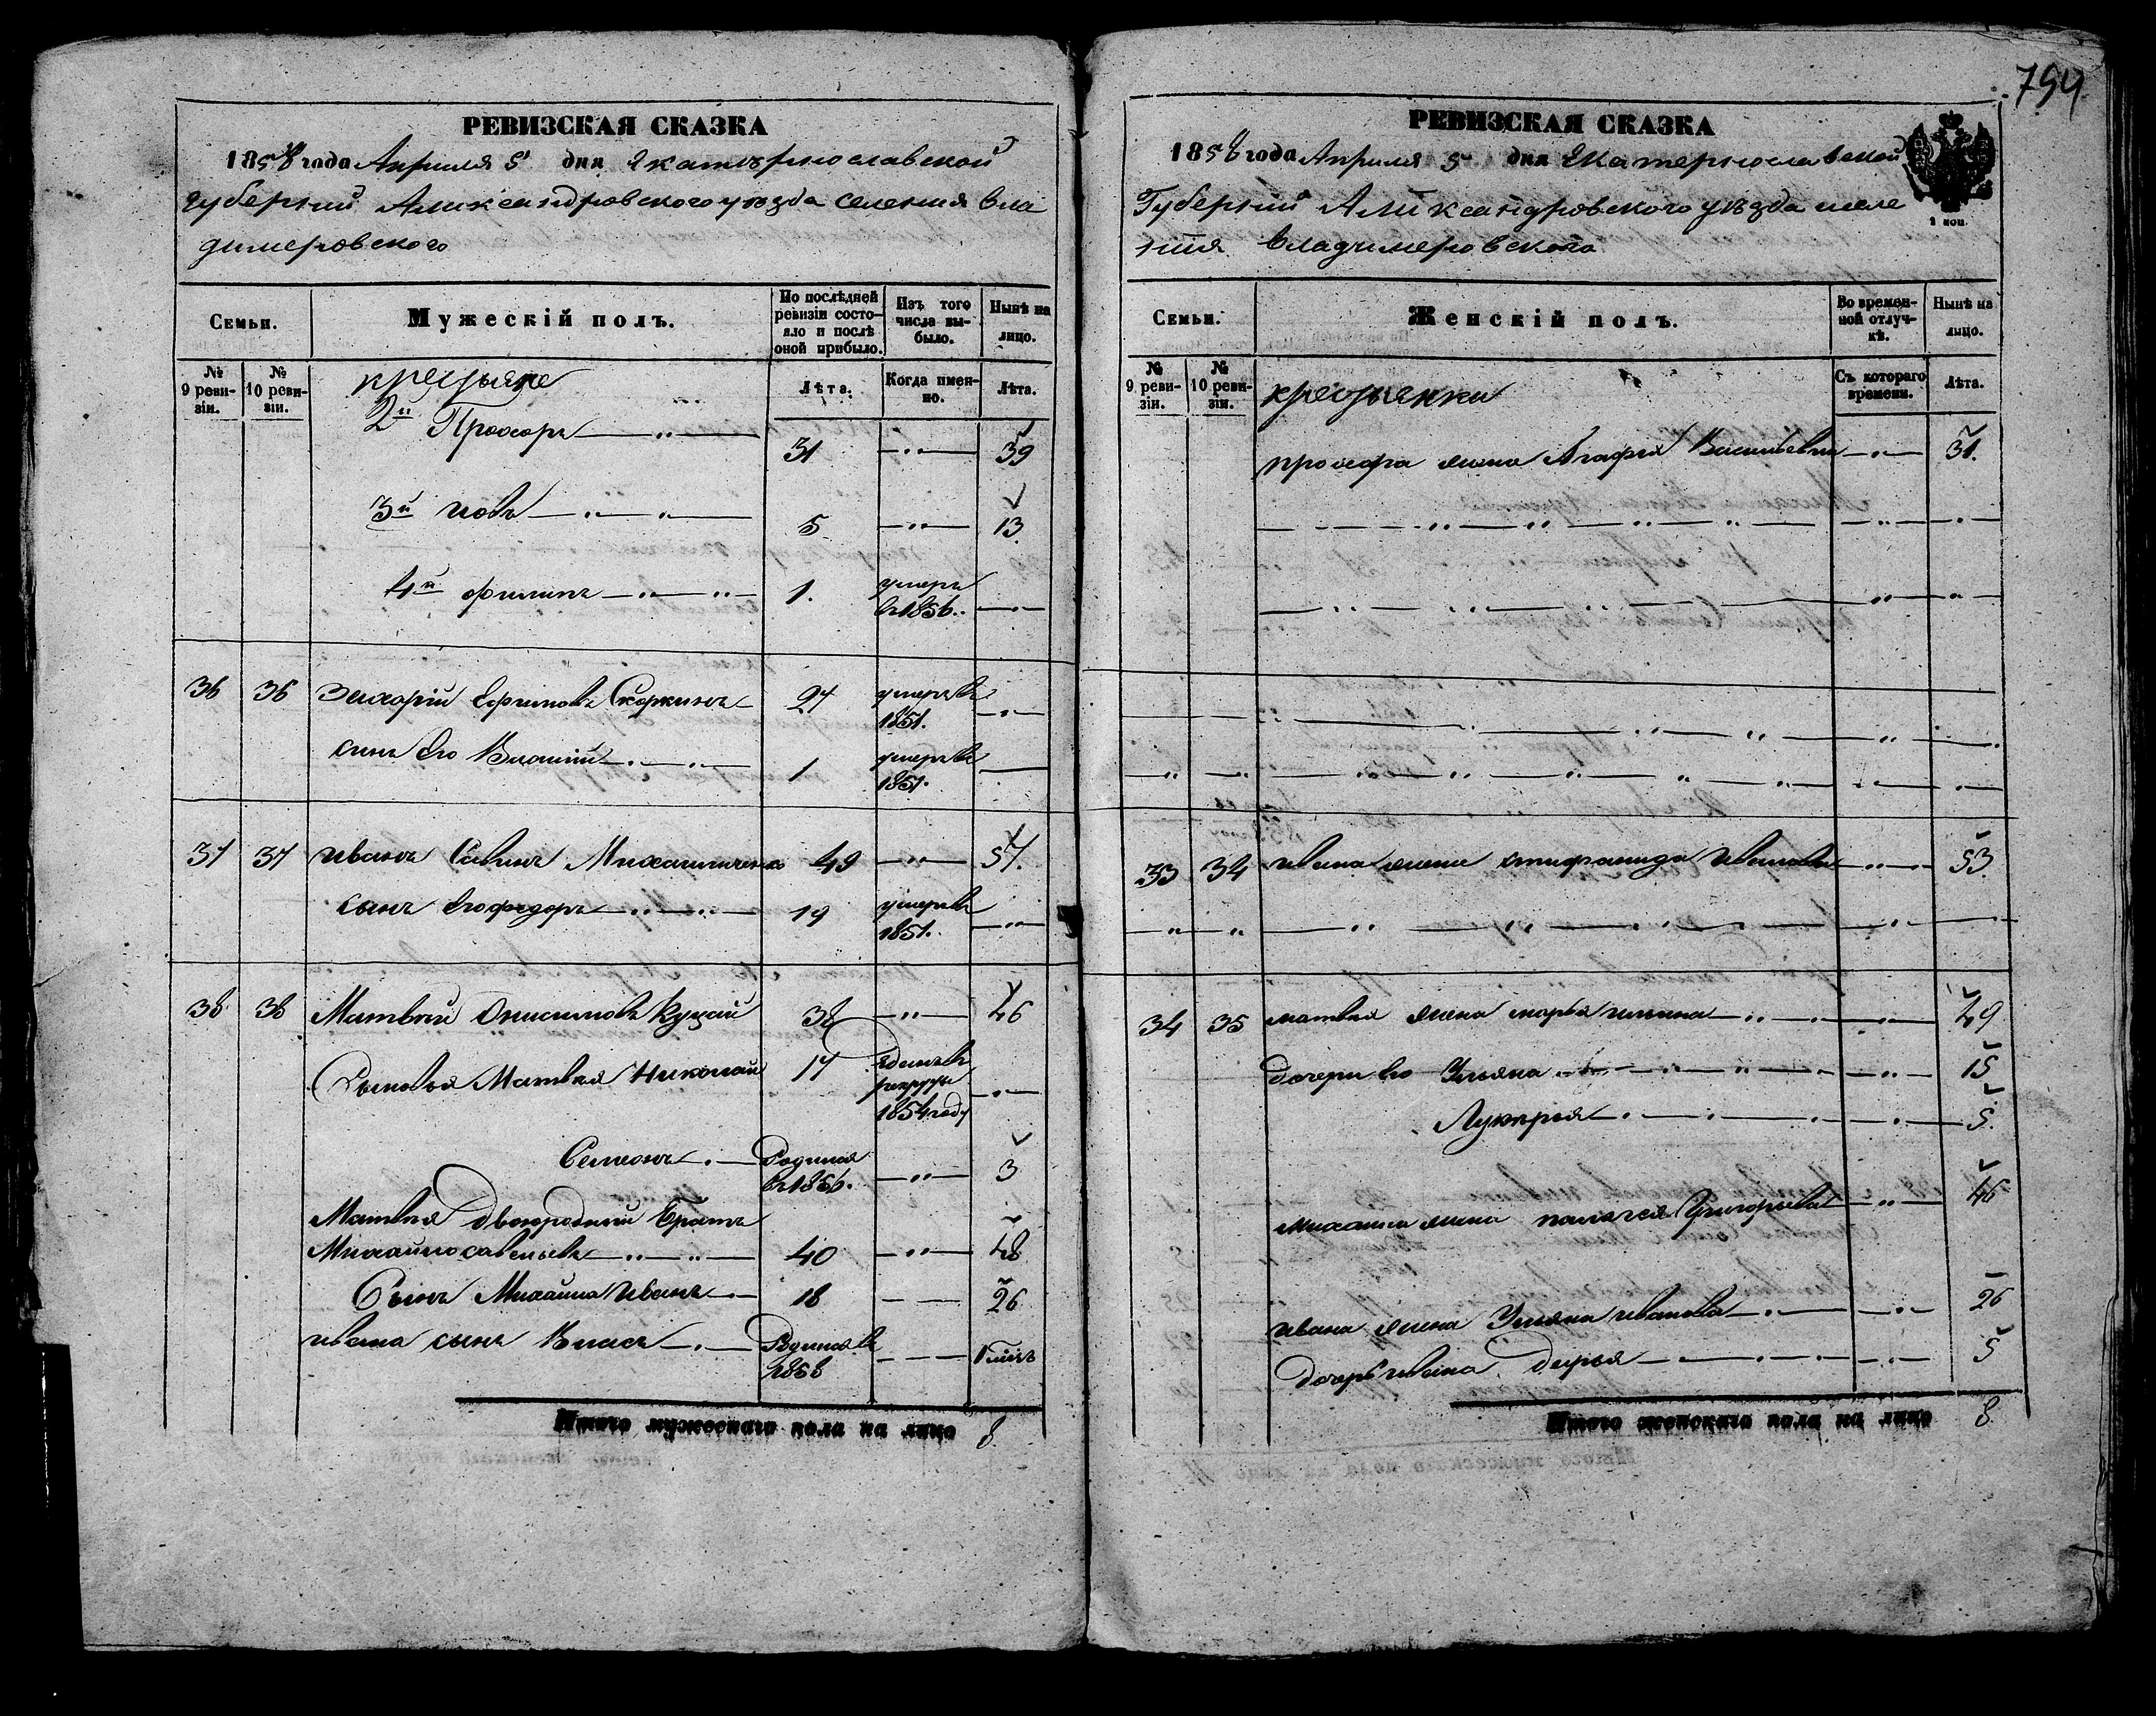 794
РЕВИЗСКАЯ СКАЗКА
1858 года Апреля 5 дня Екатеринославской
Губерний Аликсандровского уезда селения Вла
димеровского
Семьи.
Мужескій полъ.
По послѣдней ревизіи состояло и послѣ оной прибыло.
Изъ того числа выбыло.
Нынѣ на лицо.
№ 9 ревизіи.
№ 10 ревизіи.
крестьяне
Лѣта.
Когда именно.
Лѣта.
2й Прохоръ 31 39
3й Иовъ 5 13
4й Филипъ 1. умеръ в 1856.
36 36 Захарій Ефимовъ Скоркинъ 27 умеръ в 1851.
сынъ его Власий 1 умеръ в 1851.
37 37 Иванъ Савинъ Михайличенко 49 57.
сынъ его Федоръ 19 умеръ в 1851.
38 38 Матвей Онисимовъ Куцай 38 46
Сыновья Матвея Николай 17 в рекруты 1854 году
Семенъ Родился в 1856. 3
Матвея двоюродный Братъ
Михайло Савельевъ 40 48
Сынъ Михайла Иванъ 18 26
Ивана сынъ Власъ Родился в 1858
Итого мужескаго пола на лицо 8.
РЕВИЗСКАЯ СКАЗКА
1858 года Апреля 5 дня Екатеринославской
Губерний Аликсандровского уезда селе
ния Владимеровского
1 коп.
Семьи.
Женскій полъ.
Во временной отлучкѣ.
Нынѣ на лицо.
№ 9 ревизіи.
№ 10 ревизіи.
крестьянки
Съ котораго времени.
Лѣта.
прохора жена Агафия Васильевна 31.
33 34 Ивана жена Ивановна 53.
34 35 матвея жена марья ильина 49
дочери его Ульяна 15
Лукерья 5.
михайла жена палагея Григорьева 46
ивана жена Ульяна иванова 26
дочерь ивана дарья 5
Итого женскаго пола на лицо 8.